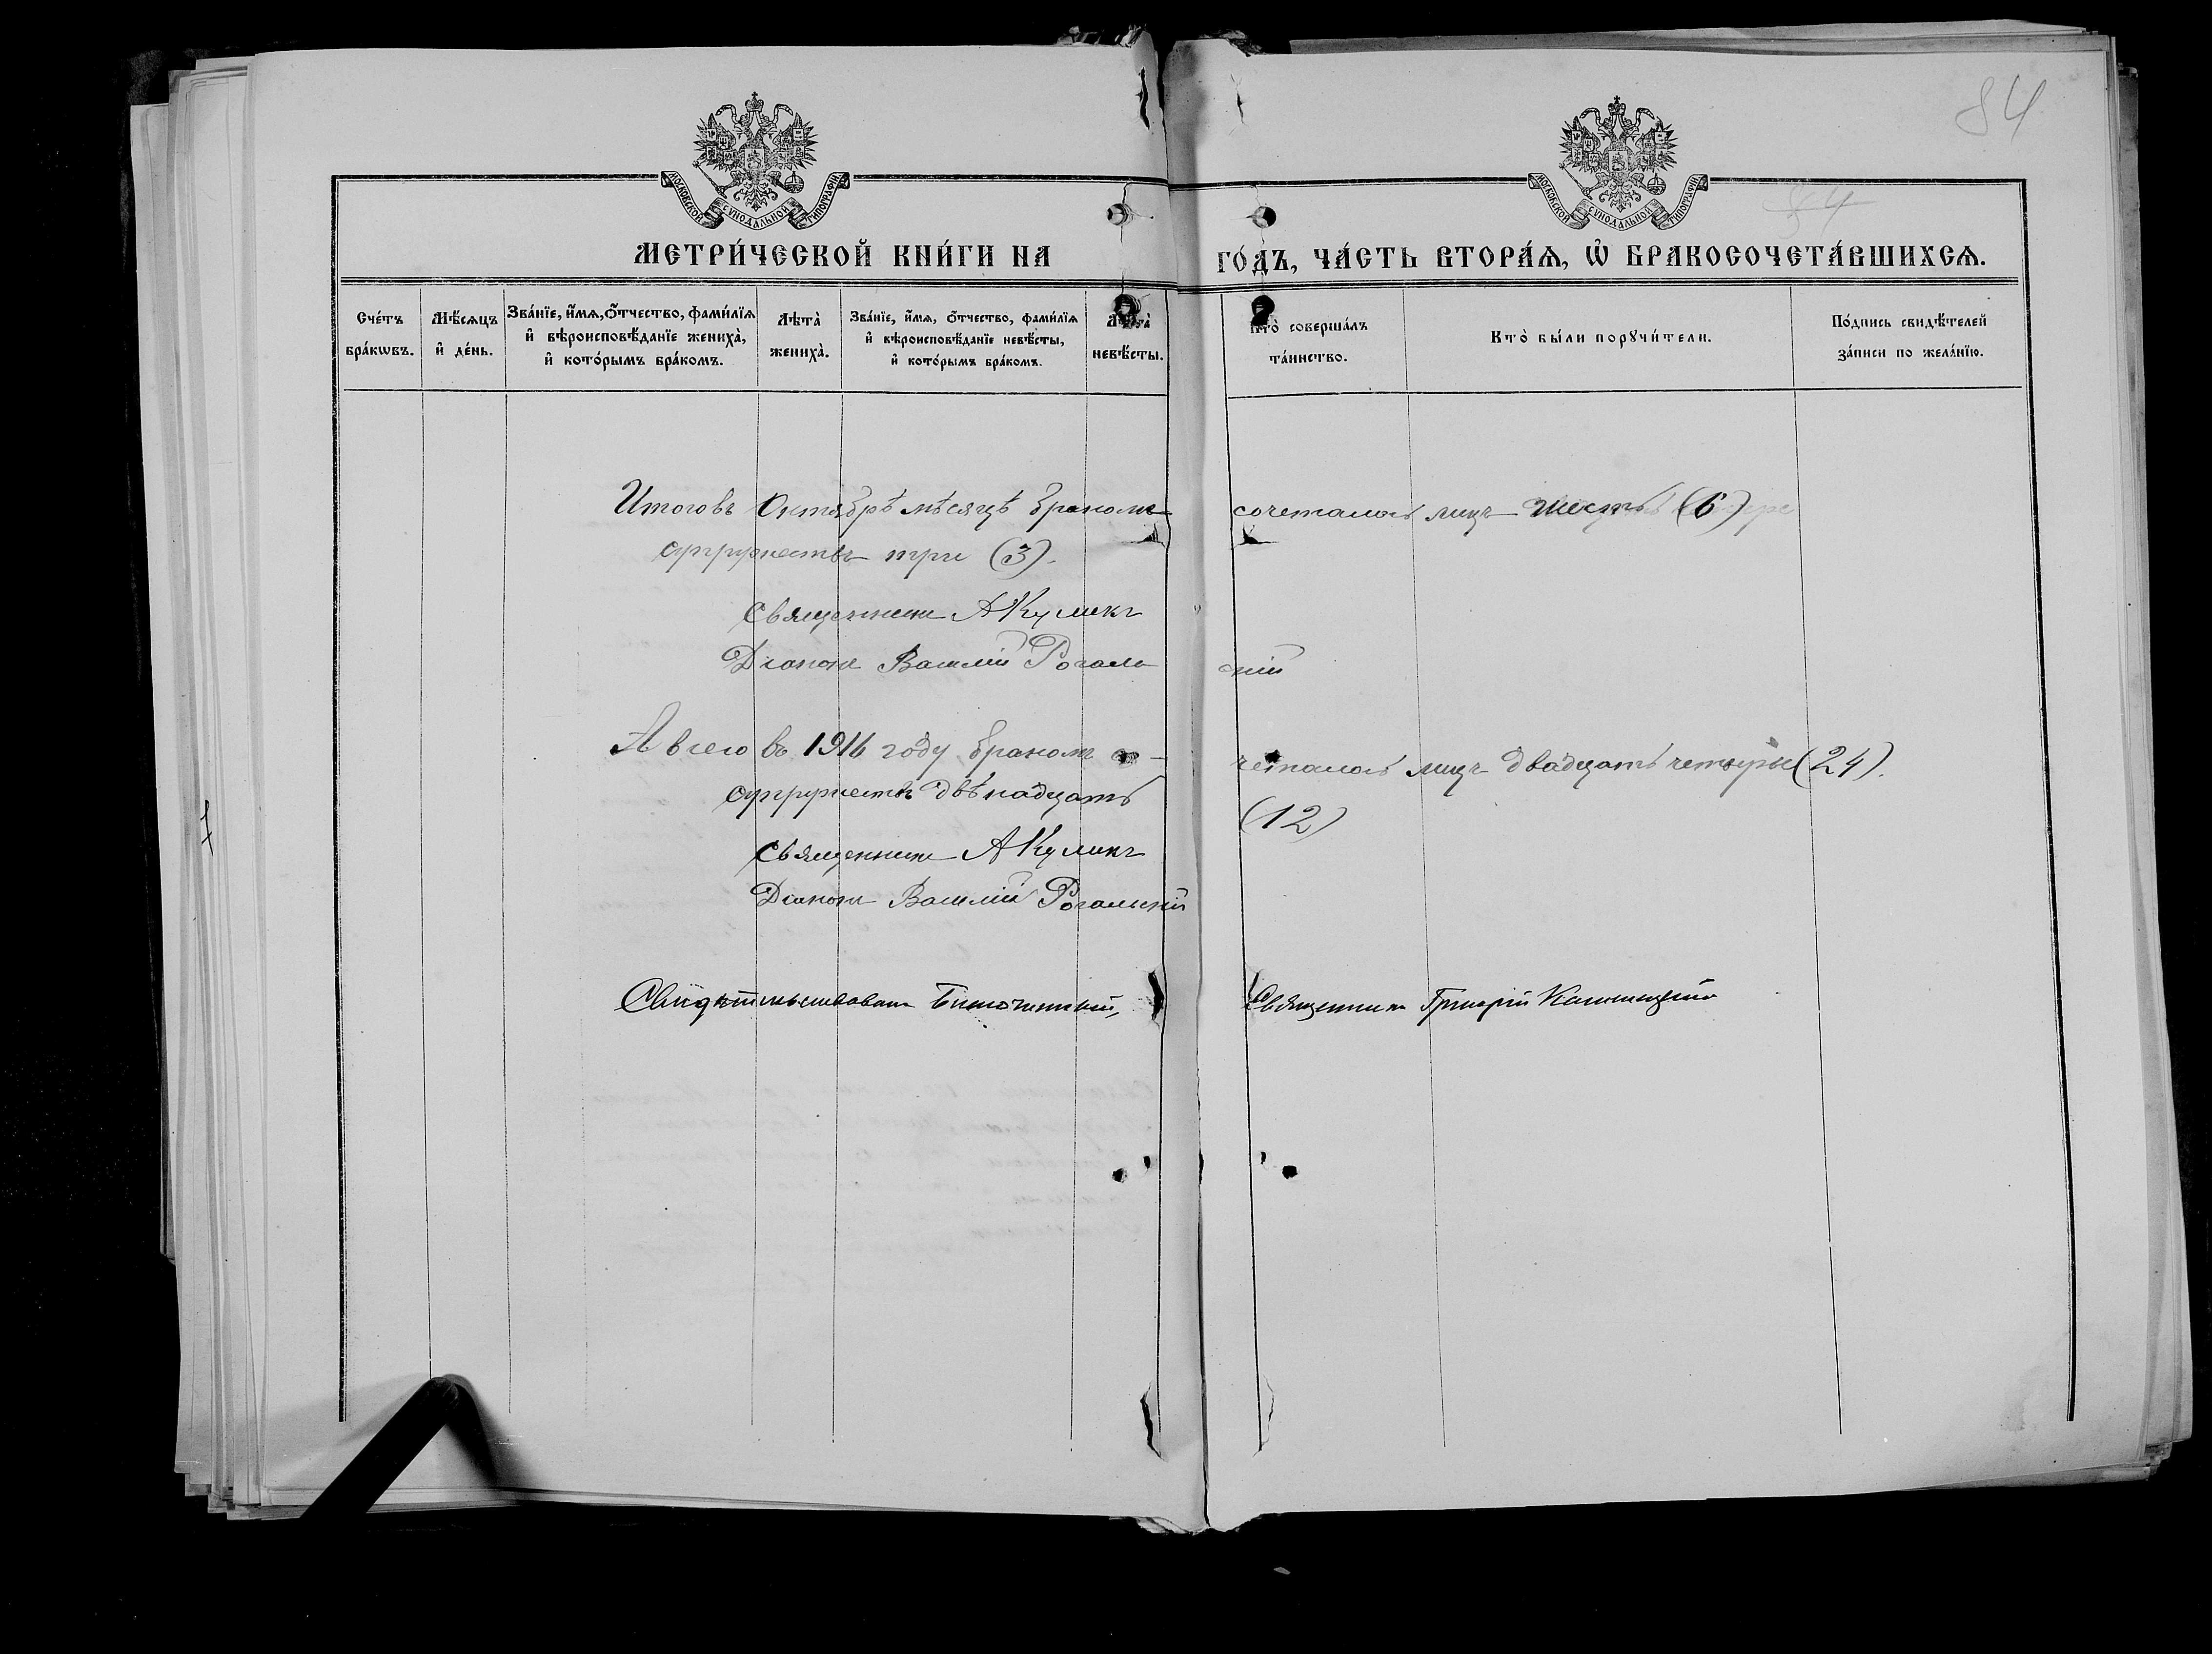 84
84
МОСКОВСКОЙ СѴНОДАЛЬНОЙ ТИПОГРАФІИ
МОСКОВСКОЙ СѴНОДАЛЬНОЙ ТИПОГРАФІИ
МЕТРИ́ЧЕСКОЙ КНИ́ГИ НА ГО́ДЪ, ЧА́СТЬ ВТОРА́Ѧ, Ѡ҆ БРАКОСОЧЕТА́ВШИХСѦ.
Сче́тъ бра́кѡвъ.
Мѣ́сѧцъ и҆ де́нь.
Зва́нїе, и҆́мѧ, ѻ҆́тчество, фами́лїѧ и҆ вѣроисповѣ́данїе жениха̀, и҆ кото́рымъ бра́комъ.
Лѣта̀ жениха̀.
Зва́нїе, и҆́мѧ, ѻ҆́тчество, фами́лїѧ и҆ вѣроисповѣ́данїе невѣ́сты, и҆ кото́рымъ бра́комъ.
Лѣта̀ невѣ́сты.
Кто̀ соверша́лъ та́инство.
Кто̀ бы́ли порꙋчи́тели.
По́дпись свидѣ́телей за́писи по жела́нїю.
Итого въ Октябрѣ мѣсяцѣ бракомъ сочеталось лицъ шесть (6)
супружествъ три (3).
Священникъ А Куликъ
Діаконъ Василій Рогальскій
А всего въ 1916 году бракомъ со-четалось лицъ двадцать четыре (24).
супружествъ двѣнадцать (12)
Священникъ А Куликъ
Діаконъ Василій Рогальскій
Свидѣтельствовалъ Благочинный, Священникъ Григорій